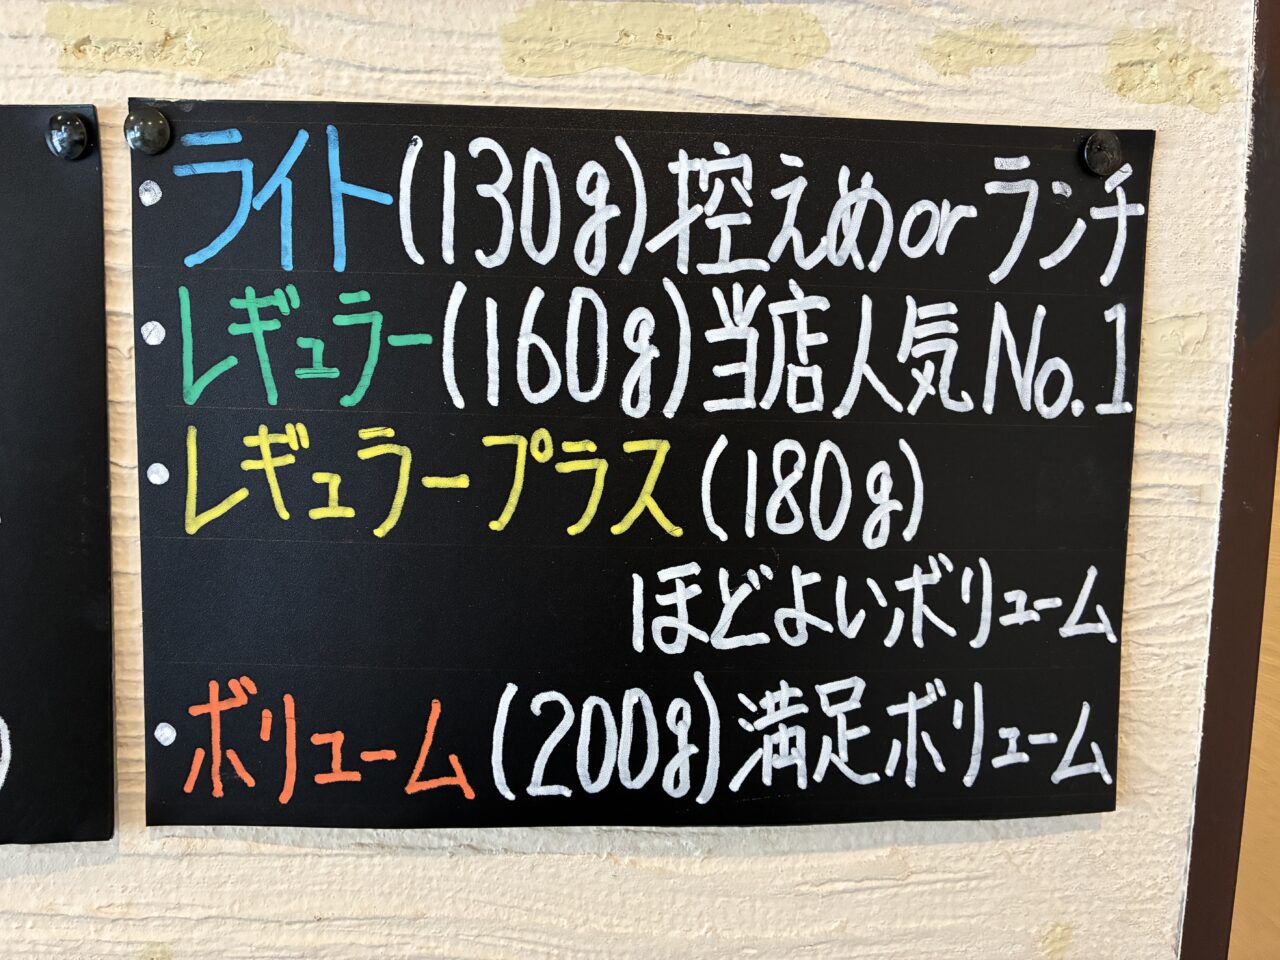 ・ライト(130g)控えめorランチ
・レギュラー(160g)当店人気No.1
・レギュラープラス(180g)
ほどよいボリューム
・ボリューム(200g)満足ボリューム